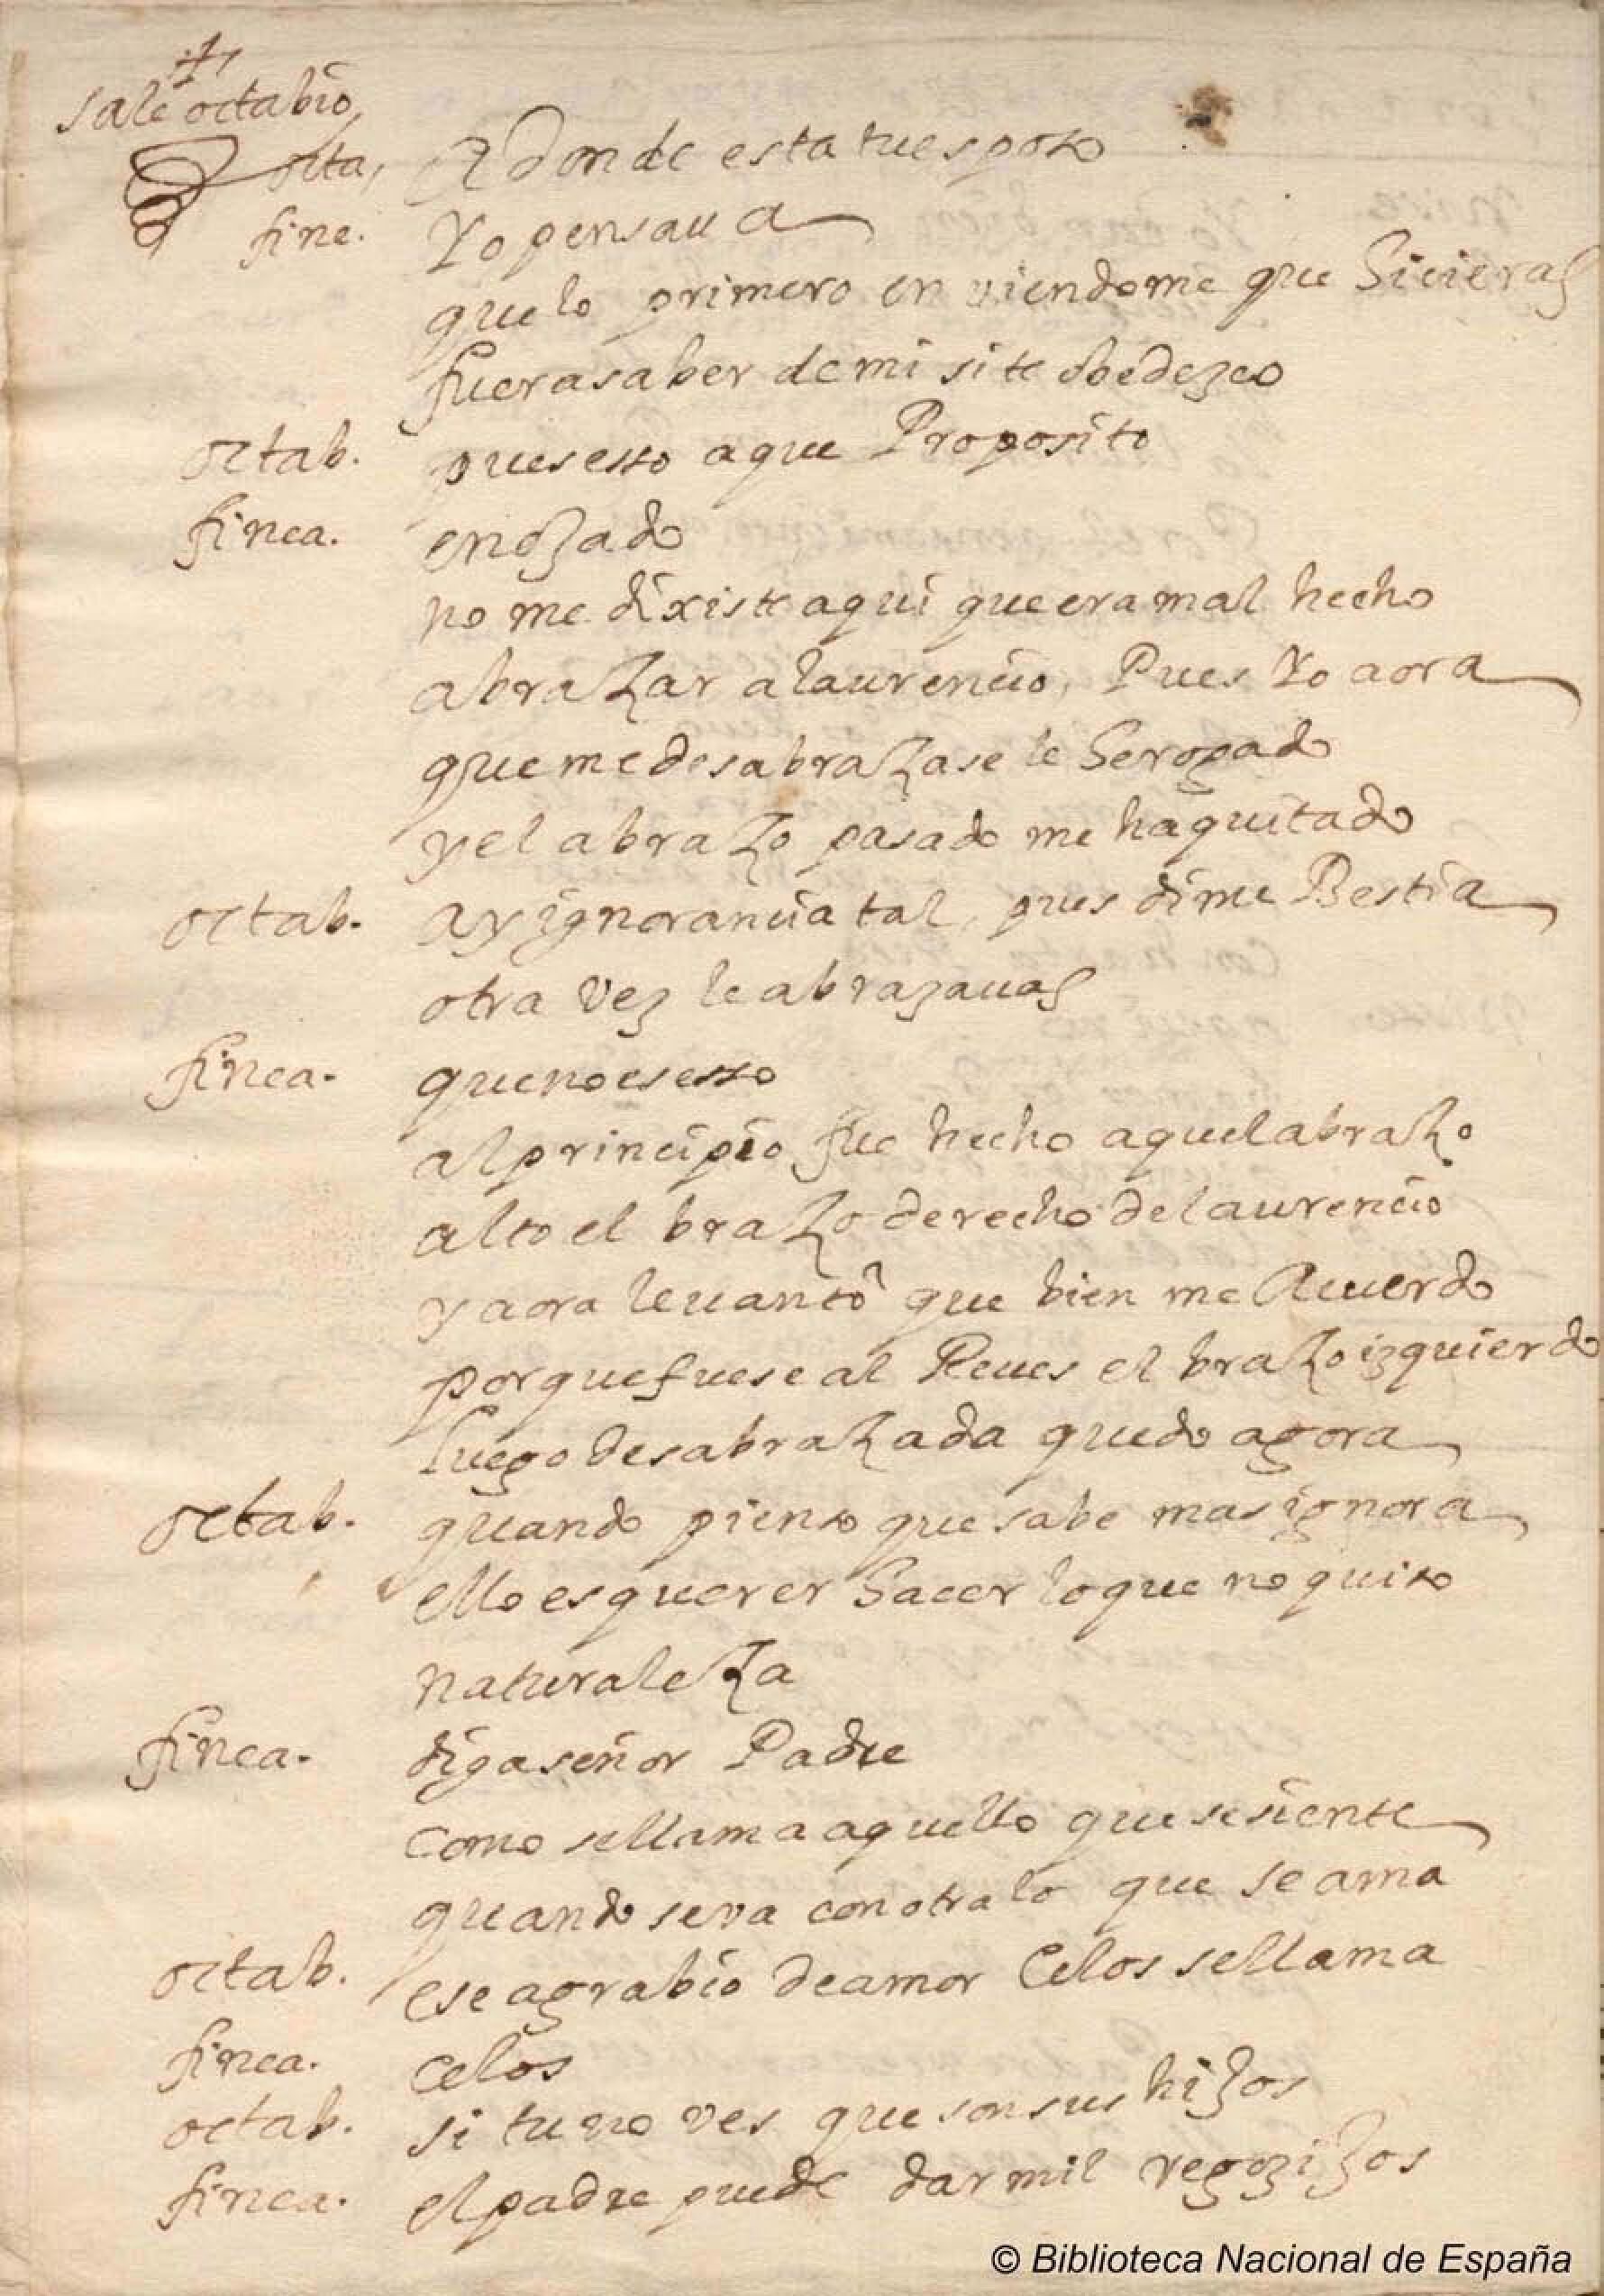 sale octabio
octa, Adonde esta tu esposo
fine. Yo pensaua
que lo primero en viendome que hicieras
fuera saber de mi si te obedezco
octab. pues esso a que Proposito
finea. enojado
no me dixiste aqui que era mal hecho
abrazar a laurencio, Pues Yo aora
que me desabrazase le he rogado
y el abrazo pasado me ha quitado
octab. ay ignorancia tal, pues dime Bestia
otra vez le abrazauas
finea. que no es esso
al principio fue hecho aquel abrazo
alto el brazo derecho de laurencio
y aora leuantó que bien me Acuerdo
porque fuese al Reues el brazo izquierdo
luego desabrazada quedo agora
octab. quando pienso que sabe mas ignora
ello es querer hacer lo que no quiso
naturaleza
finea. diga señor Padre
como se llama aquello que se siente
quando se va con otra lo que se ama
octab. ese agrabio de amor Celos se llama
finea. celos
octab. si tu no ves que son sus hijos
finea. el padre puede dar mil regozijos
© Biblioteca Nacional de España